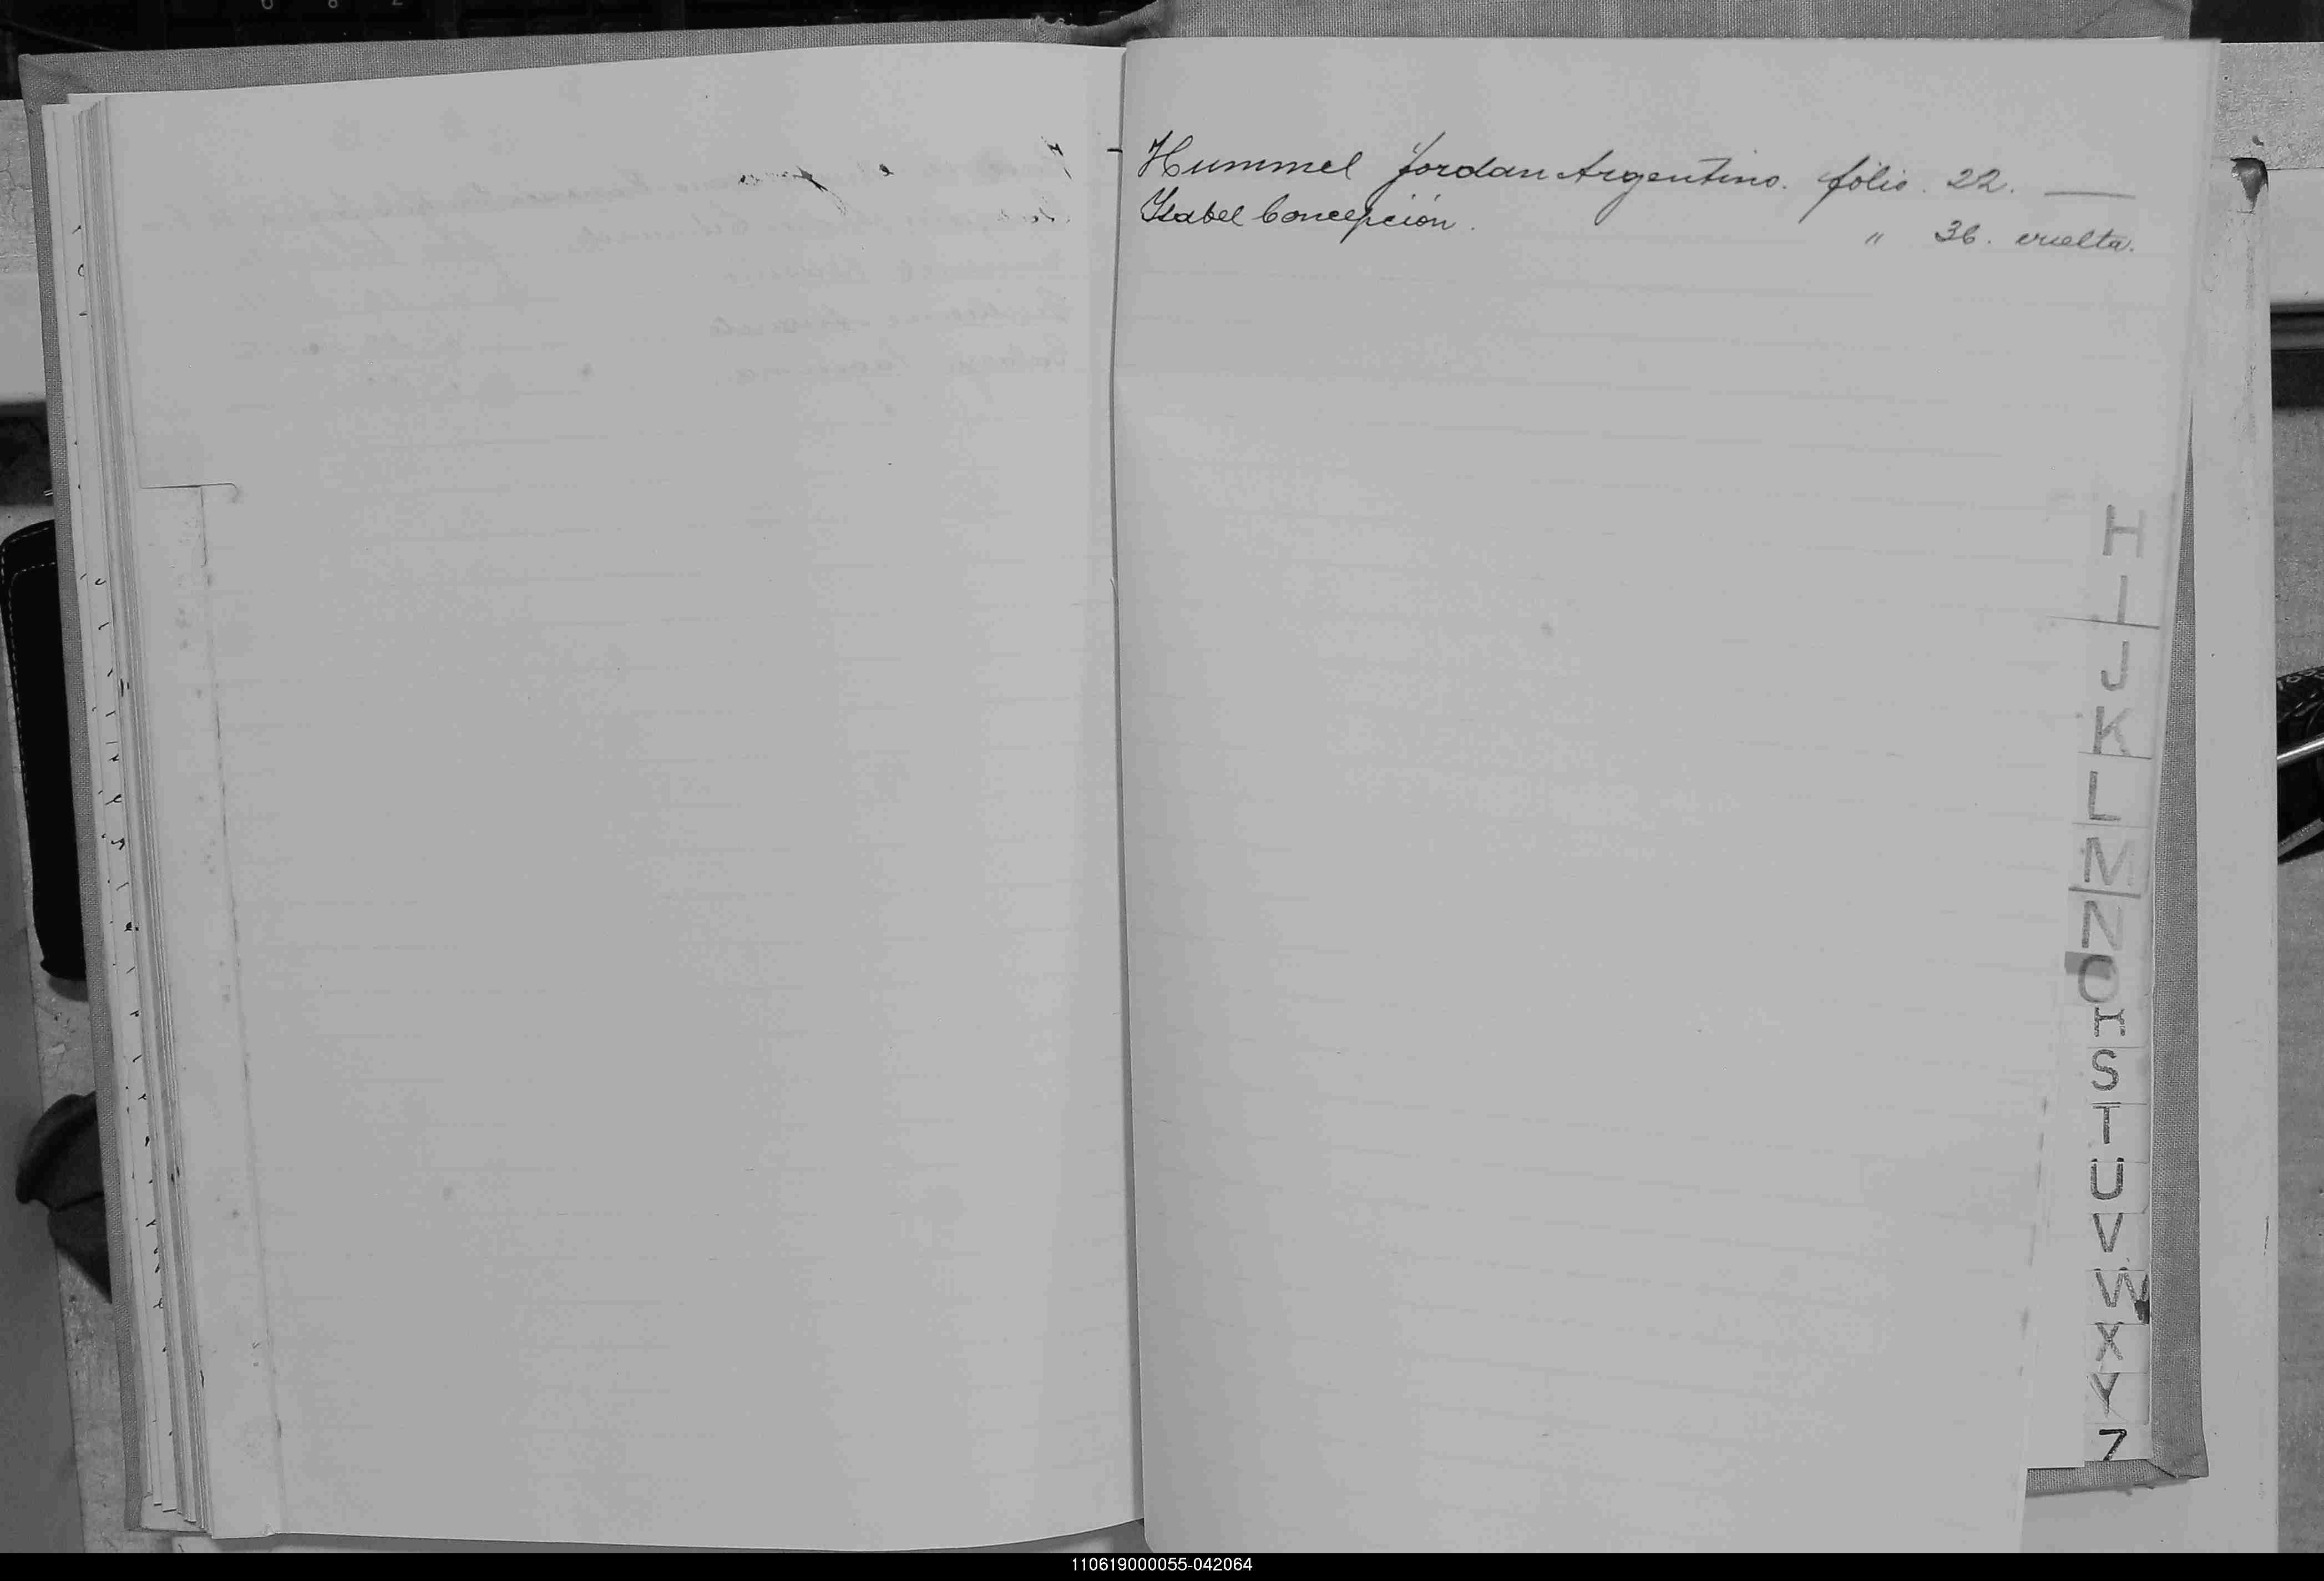 Hummel Jordan Argentino. folio. 22. —
Isabel Concepción. " 36. vuelta.
H
I
J
K
L
M
N
O
R
S
T
U
V
W
X
Y
Z
110619000055-042064